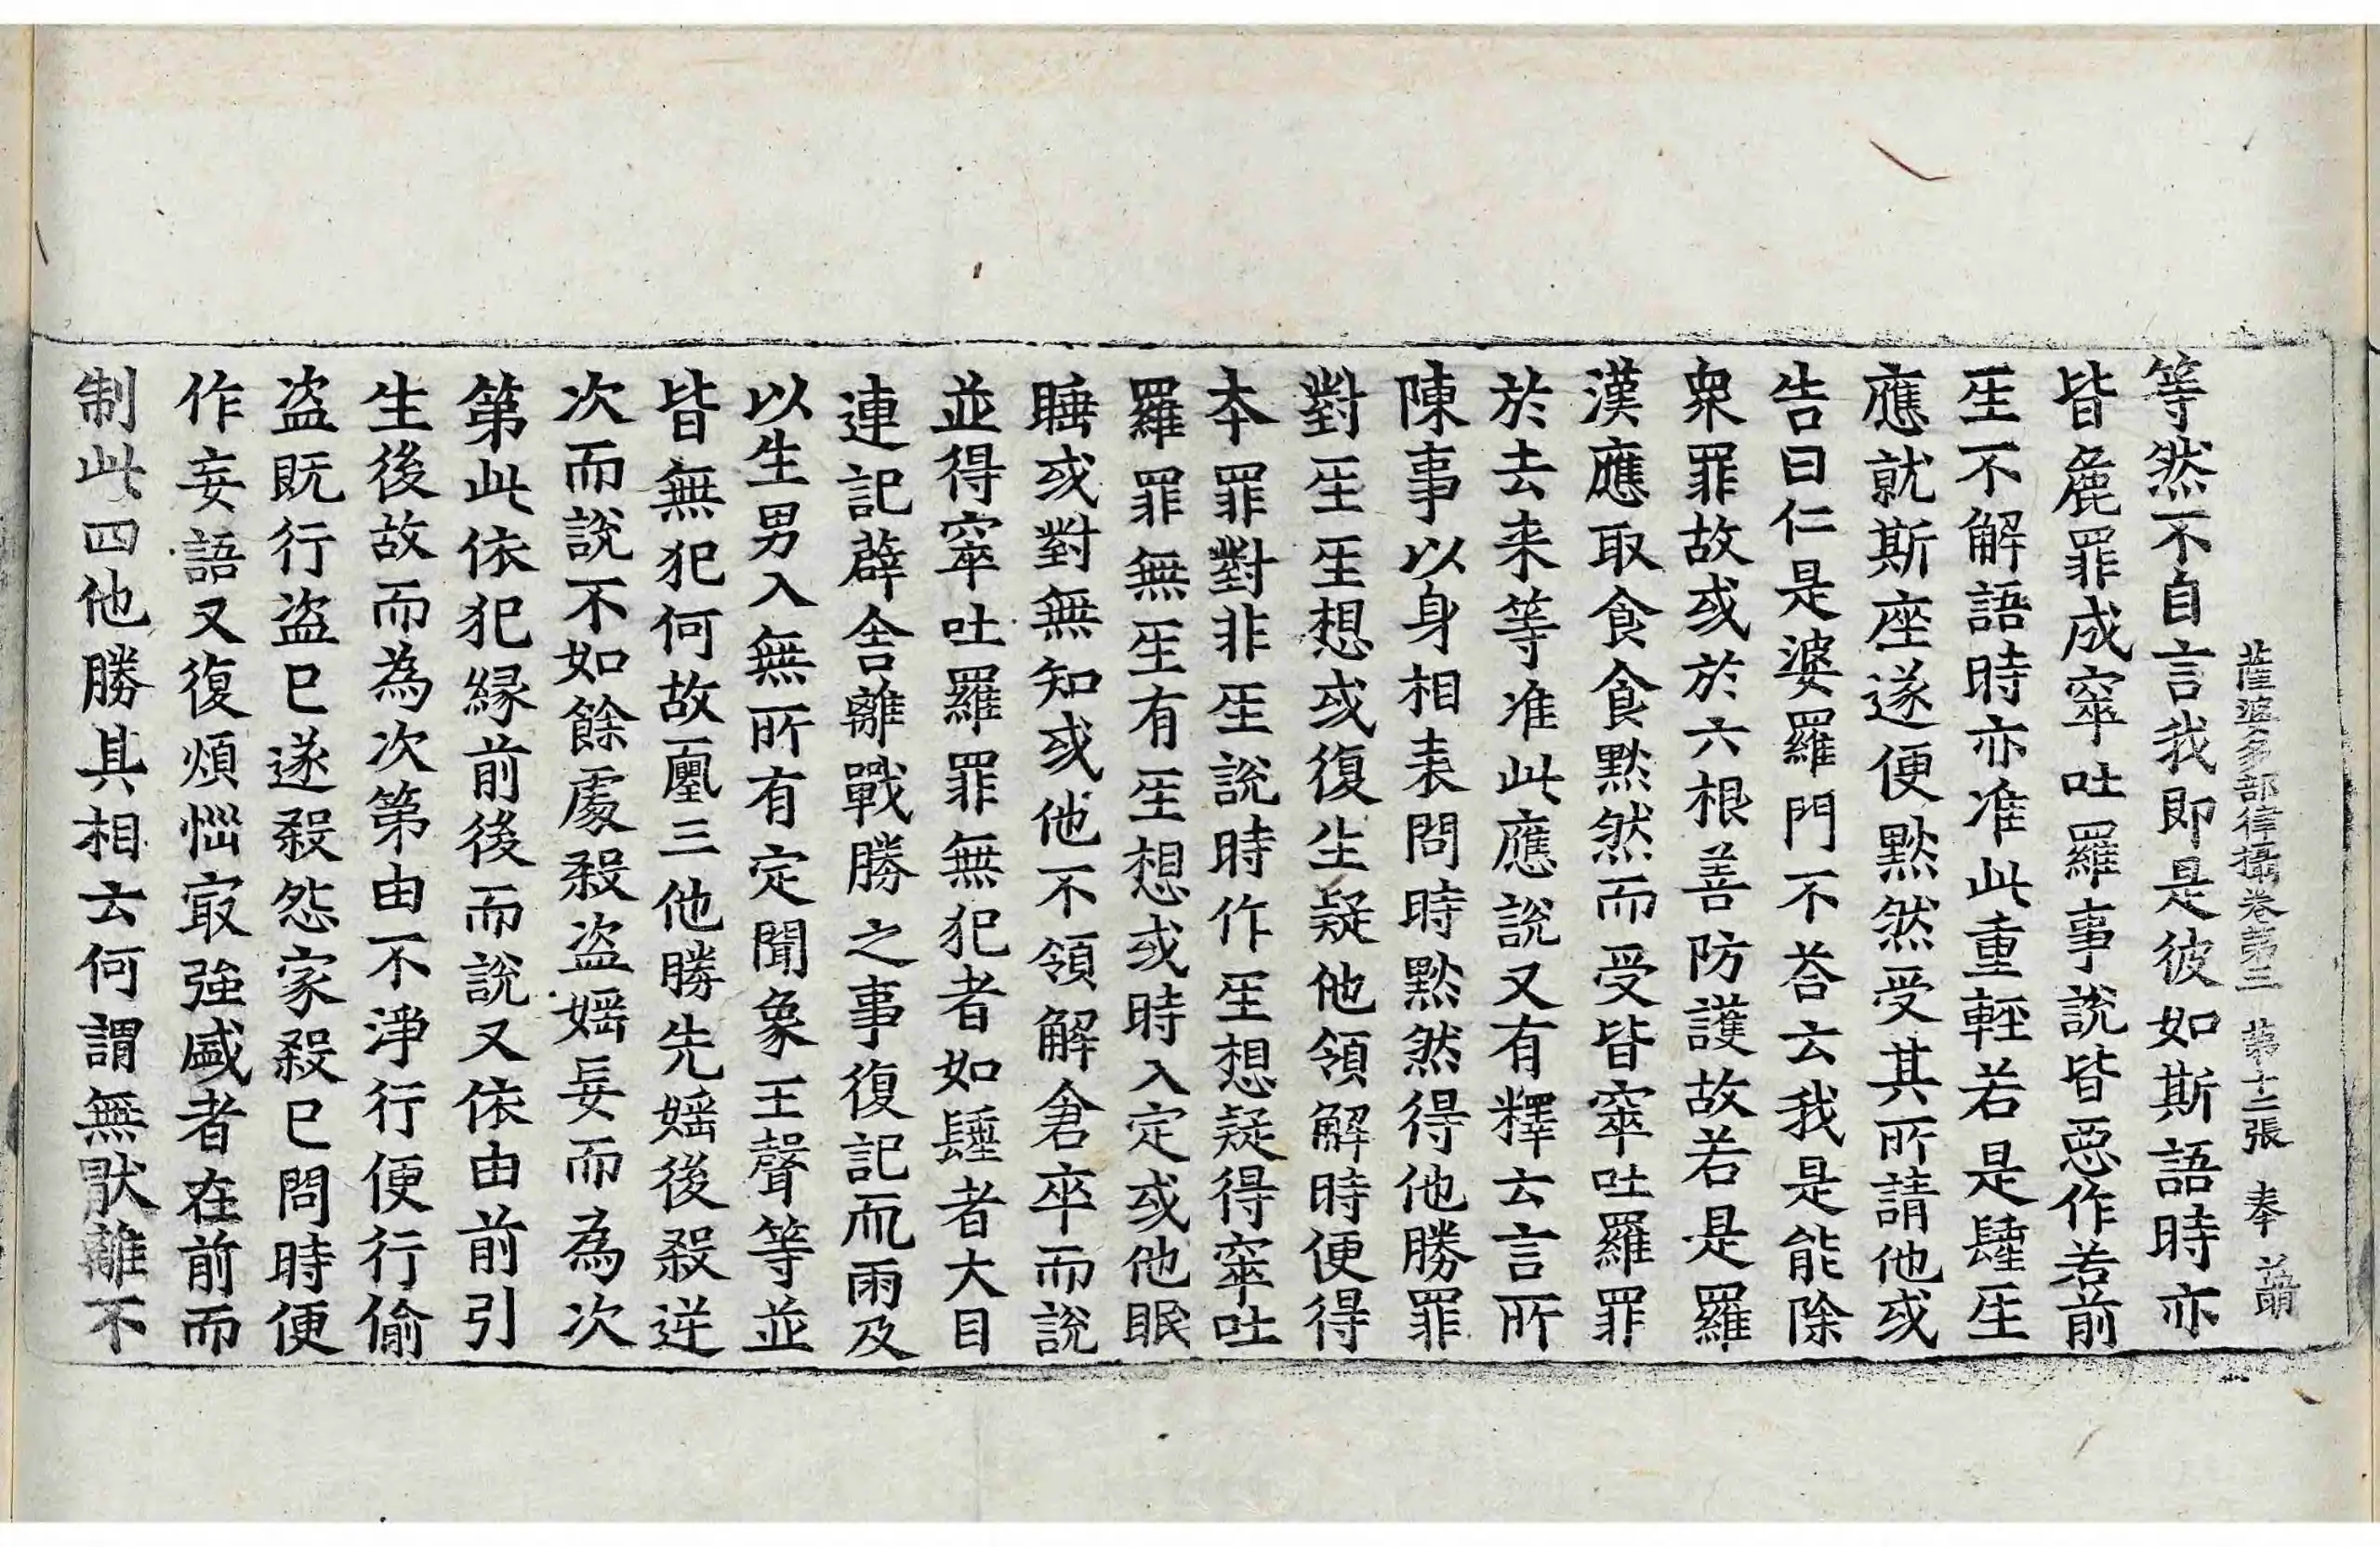 薩婆多部律攝卷第三 第十二張 奉
等然不自言我即是彼如斯語時亦
皆麁罪成窣吐羅事說皆惡作若前
𤯔不解語時亦准此重輕若是𨲉𤯔
應就斯座遂便默然受其所請他或
告曰仁是婆羅門不荅云我是能除
衆罪故或於六根善防護故若是羅
漢應取食食默然而受皆窣吐羅罪
於去来等准此應說又有釋云言所
陳事以身相表問時默然得他勝罪
對𤯔𤯔想或復生疑他領解時便得
本罪對非𤯔說時作𤯔想疑得窣吐
羅罪無𤯔有𤯔想或時入定或他眠
睡或對無知或他不領解倉卒而說
並得窣吐羅罪無犯者如者大目
連記薜舍離戰勝之事復記而雨及
以生男入無所有定聞象王聲等並
皆無犯何故初三他勝先婬後殺逆
次而說不如餘處殺盗婬妄而為次
第此依犯緣前後而說又依由前引
生後故而為次第由不淨行便行偷
盗既行盗已遂殺怨家殺已問時便
作妄語又復煩惱㝡強盛者在前而
制此四他勝其相云何謂無猒離不